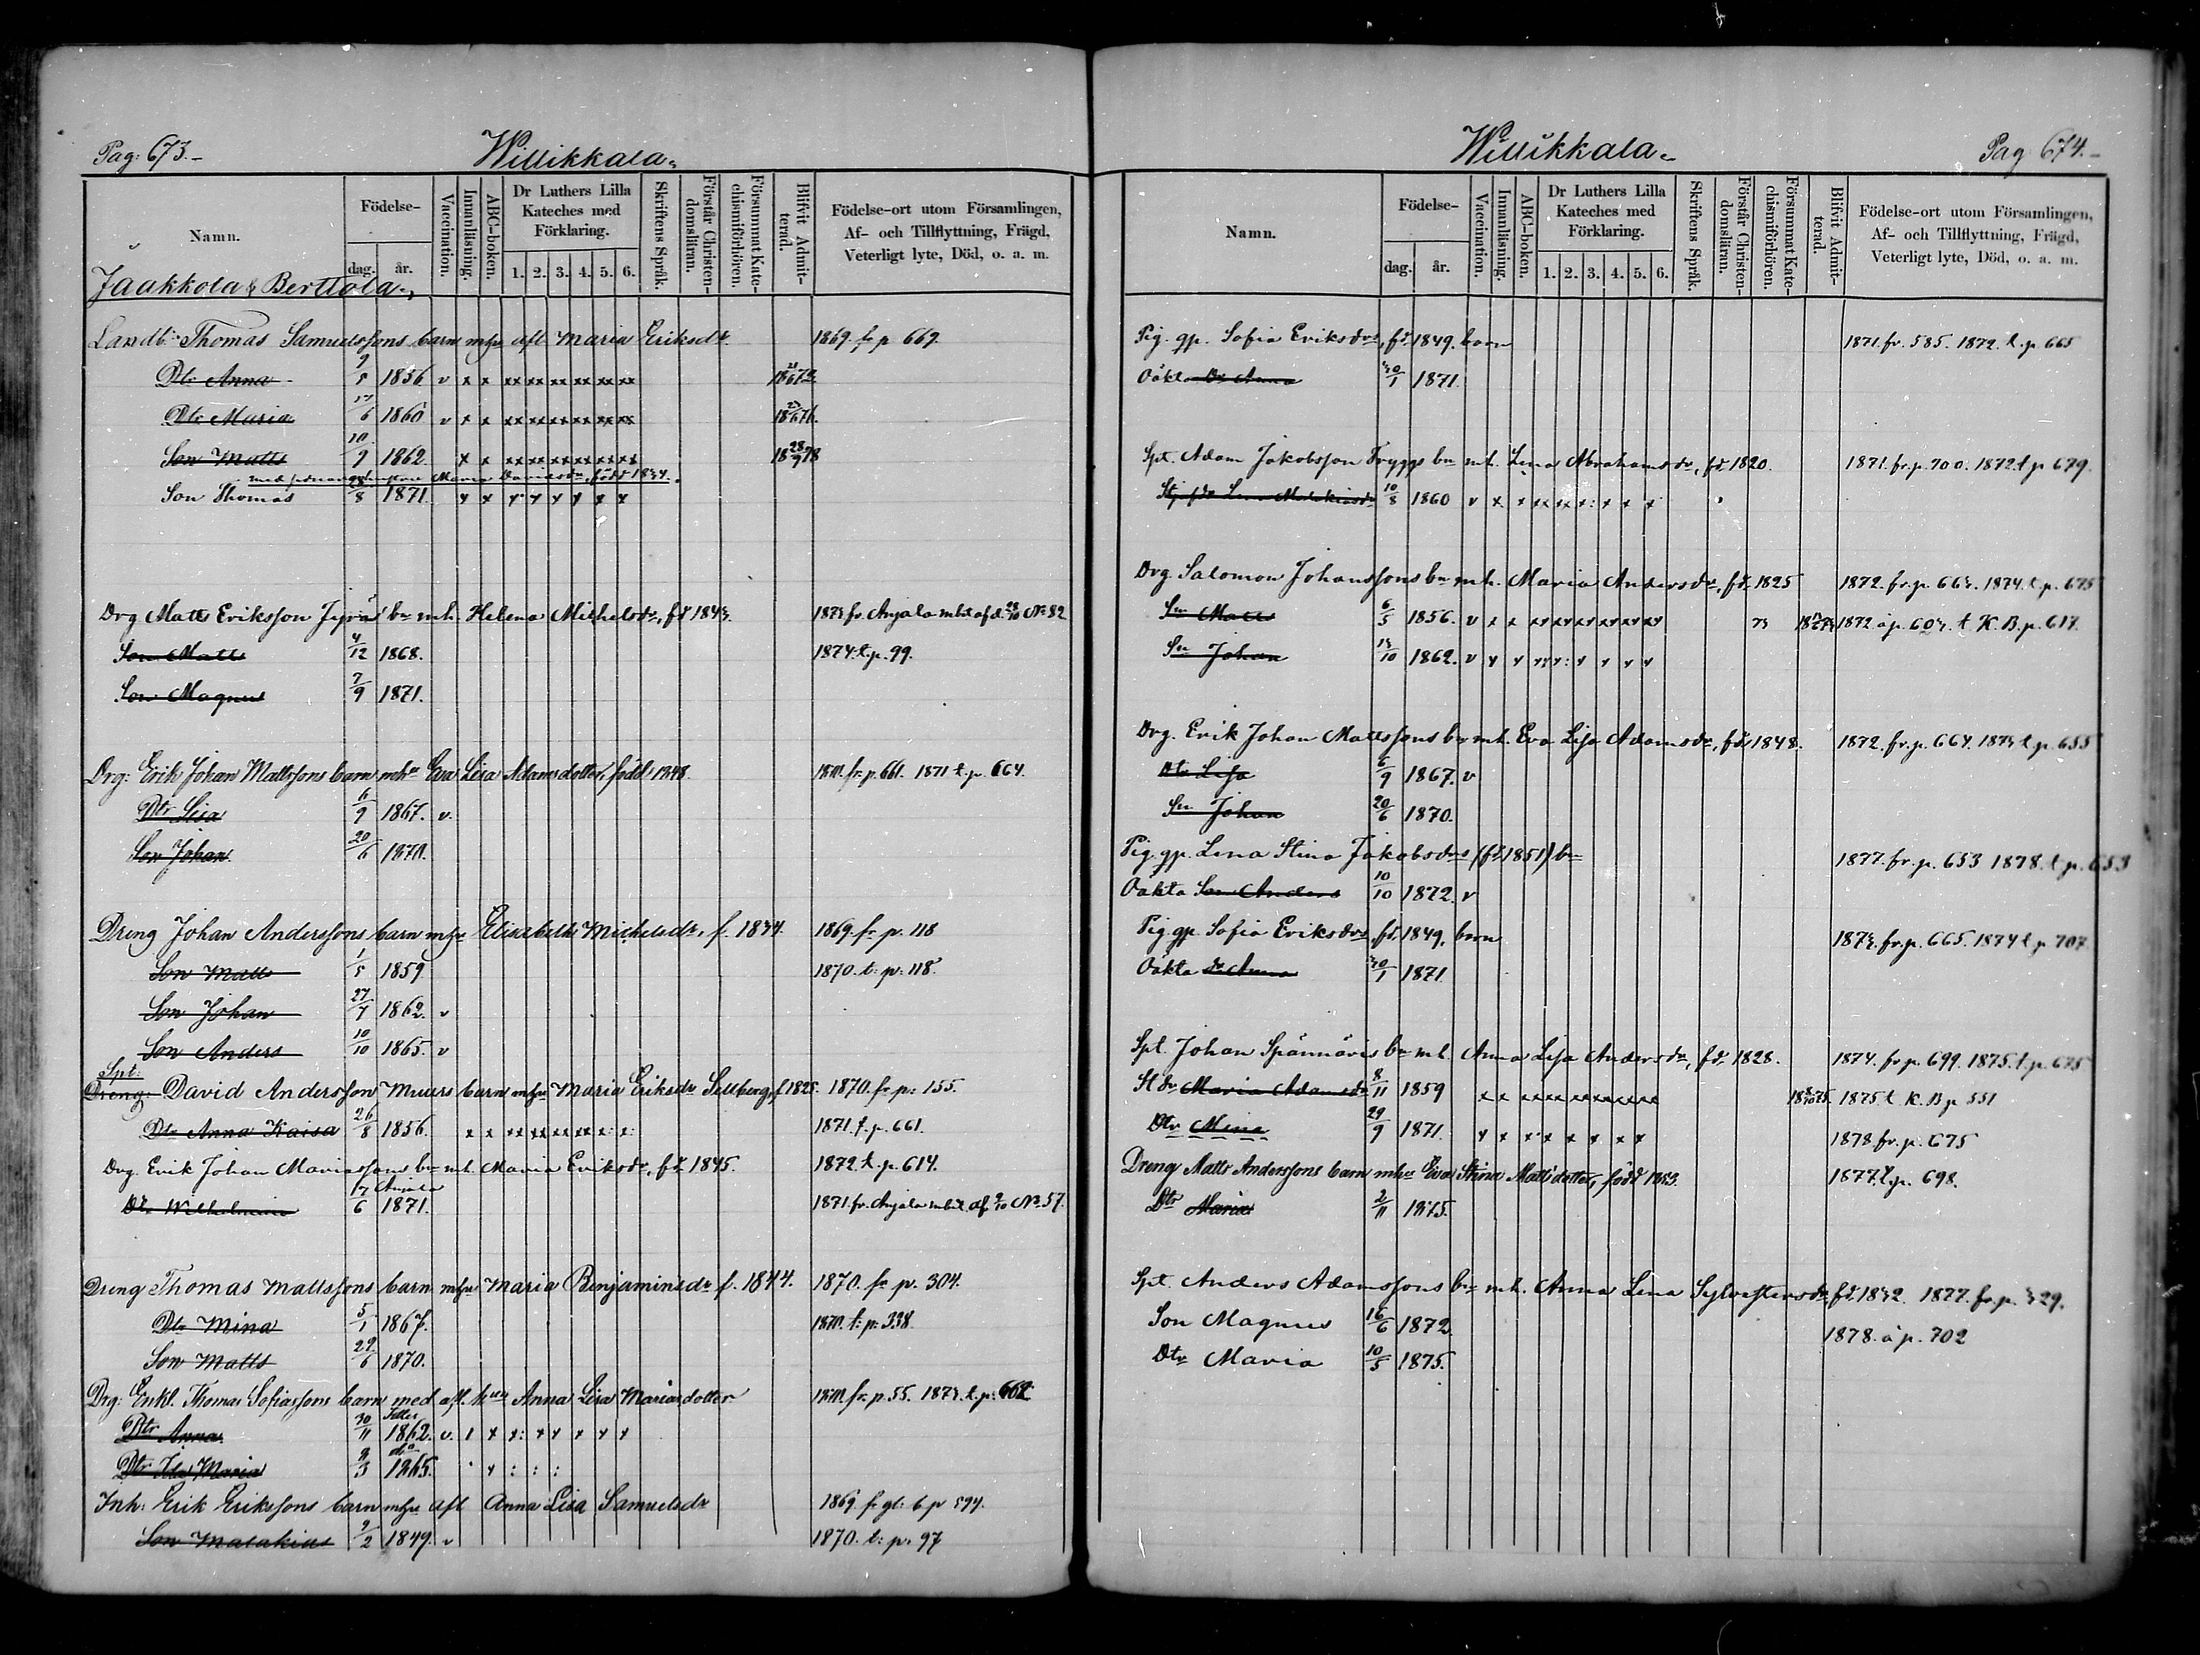 Pag: 673.-
Willikkala.
Namn.
Födelse-
dag.
år.
Vaccination.
Innanläsning.
ABC-boken.
Dr Luthers Lilla
Kateches med
Förklaring.
1. 2. 3. 4. 5. 6.
Skriftens Språk.
Förstår Christen-
domsläran.
Försummat Kate-
chismiförhören.
Blifvit Admit-
terad.
Födelse-ort utom Församlingen,
Af- och Tillflyttning, Frägd,
Veterligt lyte, Död, o. a. m.
Jaakkola & Berttola.
Landb: Thomas Samuelssons barn mhu afl Maria Eriksdr. 1869. fr p 669.
Dtr Anna 9/5 1856 v x x xx xx xx xx xx xx 18 672
Dtr Maria 17/6 1860 v x x xx xx xx xx xx xx 18 676.
Son Matts 10/9 1862. x x xx xx xx xx xx xx 18 28/9 78
med Maria Davidsdr, född 1834.
Son Thomas 28/8 1871. x x x x x x x x
Drg Matts Eriksson bn mh. Helena Michelsdr, fd 1843. 1873 fr. Anjala mbet af d. 28/10 No 82
Son Matts 4/12 1868. 1874. t. p. 99.
Son Magnus 7/9 1871.
Drg: Erik Johan Mattssons barn mhu Eva Lisa Adamsdotter, född 1848. 1870. fr. p. 661. 1871 t. p. 664.
Dtr Lisa 6/9 1867. v.
Son Johan 20/6 1870.
Dreng Johan Anderssons barn mhu Elisabeth Michelsdr. f. 1834. 1869. fr p. 118
Son Matts 1/5 1859 1870. t: p: 118.
Son Johan 27/4 1862. v
Son Anders 10/10 1865. v
Spt:
Dreng: David Andersson Muurs barn mhu Maria Eriksdr Sellberg, f 1825. 1870. fr p: 155.
Dtr Anna Kaisa 26/8 1856. x x xx xx xx xx x: x: 1871. t. p. 661.
Drg. Erik Johan Mariassons bn mh. Maria Eriksdr, fd. 1845. 1872. t. p. 614.
Anjala
Dr. Wilhelmina 17/6 1871. 1871. fr. Anjala mbet af 2/10 No 57.
Dreng Thomas Mattssons barn mhu Maria Benjaminsdr f. 1844. 1870. fr p. 304.
Dtr Mina 5/1 1867. 1870. t: p: 338.
Son Matts 29/6 1870.
Drg: Enkl. Thomas Sofiassons barn med afl. hun Anna Lisa Mariasdotter 1870. fr. p. 55. 1873. t. p. 662
Dtr Anna 30/11 1862. v. 1 x x: x x x x x
Dtr Ida Maria 9/3 1865. x : : :
Inh: Erik Erikssons barn mhu afl Anna Lisa Samuelsdr 1869. fr gl: b p 594.
Son Malakias 9/2 1849. v 1870. t: p: 97
Willikkala.
Pag 674.-
Namn.
Födelse-
dag.
år.
Vaccination.
Innanläsning.
ABC-boken.
Dr Luthers Lilla
Kateches med
Förklaring.
1. 2. 3. 4. 5. 6.
Skriftens Språk.
Förstår Christen-
domsläran.
Försummat Kate-
chismiförhören.
Blifvit Admit-
terad.
Födelse-ort utom Församlingen,
Af- och Tillflyttning, Frägd,
Veterligt lyte, Död, o. a. m.
Pig. gp. Sofia Eriksdrs, fd. 1849. barn 1871. fr. 585. 1872. t. p 665
Oäkta Dr Anna 30/1 1871.
Spt. Adam Jakobsson Tryggs bn mh. Lena Abrahamsdr, fd. 1820. 1871. fr. p. 700. 1872. t p 679.
Lena Malakiasdr 10/8 1860 v x x xx xx x: x x x
Drg. Salomon Johanssons bn mh. Maria Andersdr, fd. 1825 1872. fr. p. 663. 1874. t. p. 675
Sn Matts 6/5 1856. v x x xx xx xx xx xx xx 73 1872 å p. 603. t K. B. p. 617.
Sn Johan 13/10 1862. v x x xx x: x x x x
Drg. Erik Johan Mattssons bn mh. Eva Lisa Adamsdr, fd. 1848. 1872. fr. p. 664. 1873 t. p. 655
Dtr Lisa 6/9 1867. v
Sn Johan 20/6 1870.
Pig. gp. Lena Stina Jakobsdrs (fd. 1851) bn 1877. fr. p. 653 1878. t p. 653
Oäkta Son Anders 10/10 1872. v
Pig. gp Sofia Eriksdrs, fd. 1849, barn 1873. fr. p. 665. 1874 t. p. 707.
Oäkta dr Anna 30/1 1871
Spt. Johan Spännäris bn mh. Anna Lisa Andersdr, fd. 1828. 1874. fr p. 699. 1875. t. p. 675
St dr Maria Adamsdr 8/11 1859 x x xx xx xx xx xx xx 1875. t K. B p. 551
Dtr Mina 29/9 1871. x x x x x x x x 1878 fr. p. 675
Dreng Matts Anderssons barn mhu Eva Stina Mattsdotter, född 1853. 1877. t. p. 698.
Dtr Maria 2/11 1875.
Spt. Anders Adamssons bn mh. Anna Lena Sylvestersdr, fd. 1832. 1877. fr. p. 329.
Son Magnus 16/6 1872. 1878. å p. 702
Dtr Maria 10/5 1875.